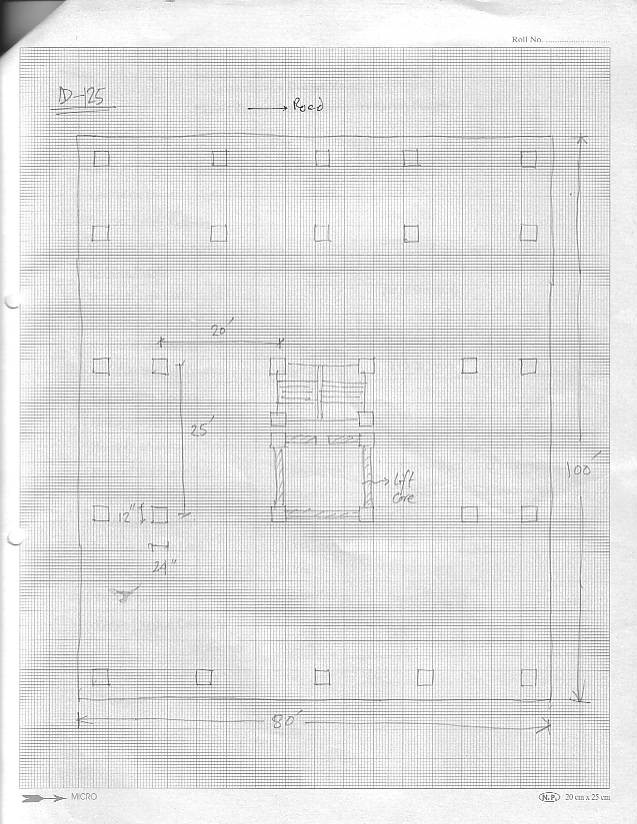 Roll No. ..........................
D-125
→ Road
20'
25'
100'
Lift
Core
12"
24"
80'
MICRO
N.P. 20 cm x 25 cm